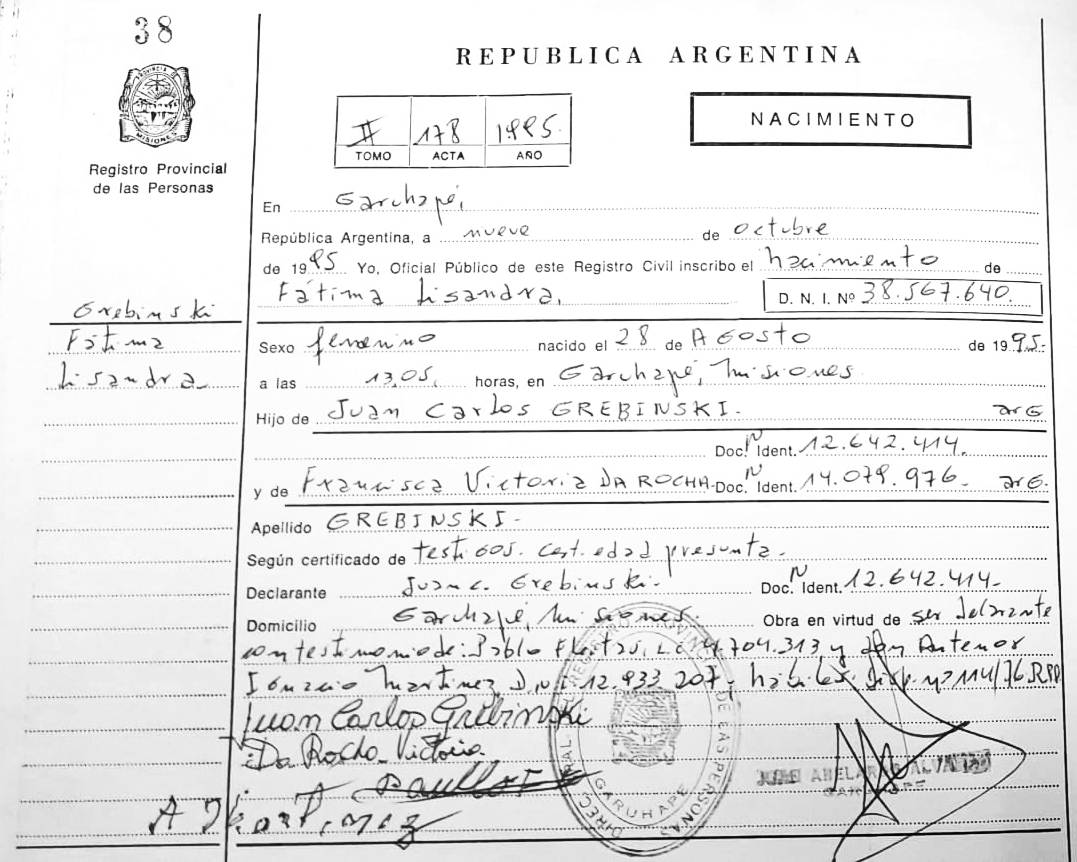 38
PROVINCIA DE
MISIONES
Registro Provincial
de las Personas
Grebinski
Fátima
Lisandra
REPUBLICA ARGENTINA
II 178 1995.
TOMO ACTA AÑO
NACIMIENTO
En Garuhapé,
República Argentina, a nueve de octubre
de 1995 Yo, Oficial Público de este Registro Civil inscribo el nacimiento de
Fátima Lisandra, D. N. I. Nº 38.567.640.
Sexo femenino nacido el 28 de AGOSTO de 1995.
a las 13,05, horas, en Garuhapé, Misiones
Hijo de Juan Carlos GREBINSKI. arG.
Doc. N Ident. 12.642.414.
y de Francisca Victoria DA ROCHA. Doc. N Ident. 14.079.976. arG.
Apellido GREBINSKI.
Según certificado de testigos. Cert. edad presunta.
Declarante Juan C. Grebinski. Doc. N Ident. 12.642.414.
Domicilio Garuhapé, Misiones. Obra en virtud de ser
con testimonio de: Pablo L.E. 704.313 y Antenor
Ignacio Martinez, D.N.I. 12.933.207, hábiles. Disp. nº 114/76.
Juan Carlos Grebinski
Da Rocha Victoria
A I Martinez
DE LAS PERSONAS
GARUHAPE